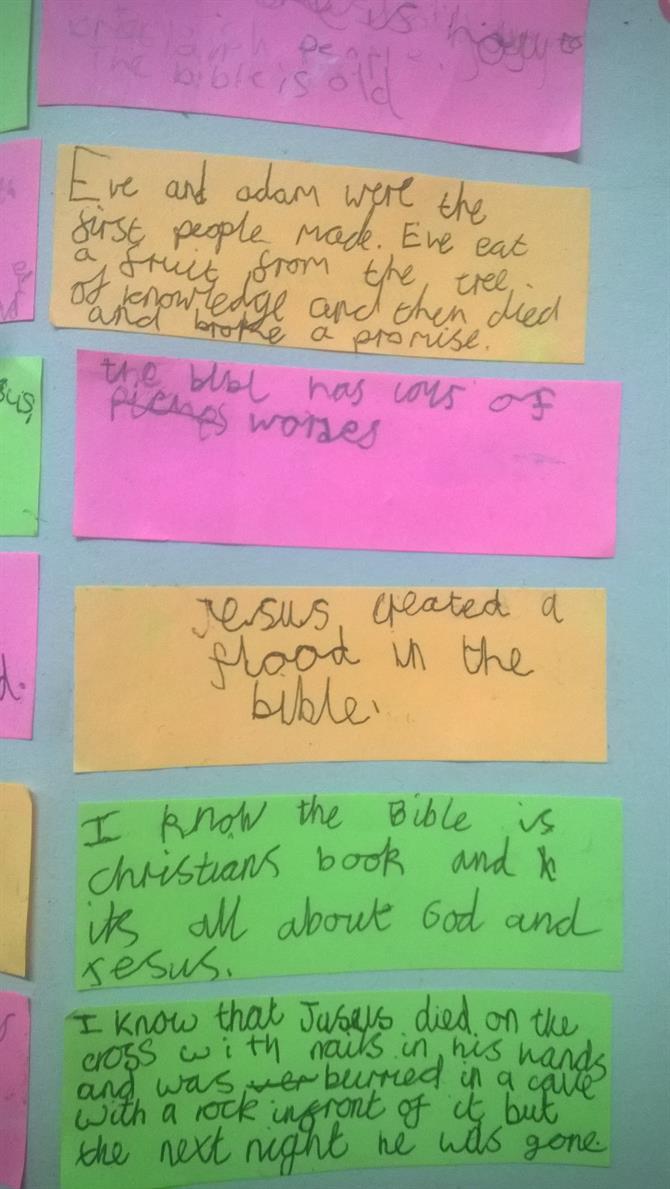 The bible is old
Eve and adam were the
first people made. Eve eat
a fruit from the tree
of knowledge and then died
and broke a promise.
the bibl has lots of
worses
Jesus created a
flood in the
bible.
I know the Bible is
christians book and
its all about God and
Jesus.
I know that Jusus died on the
cross with nails in his hands
and was burried in a cave
with a rock infront of it but
the next night he was gone.